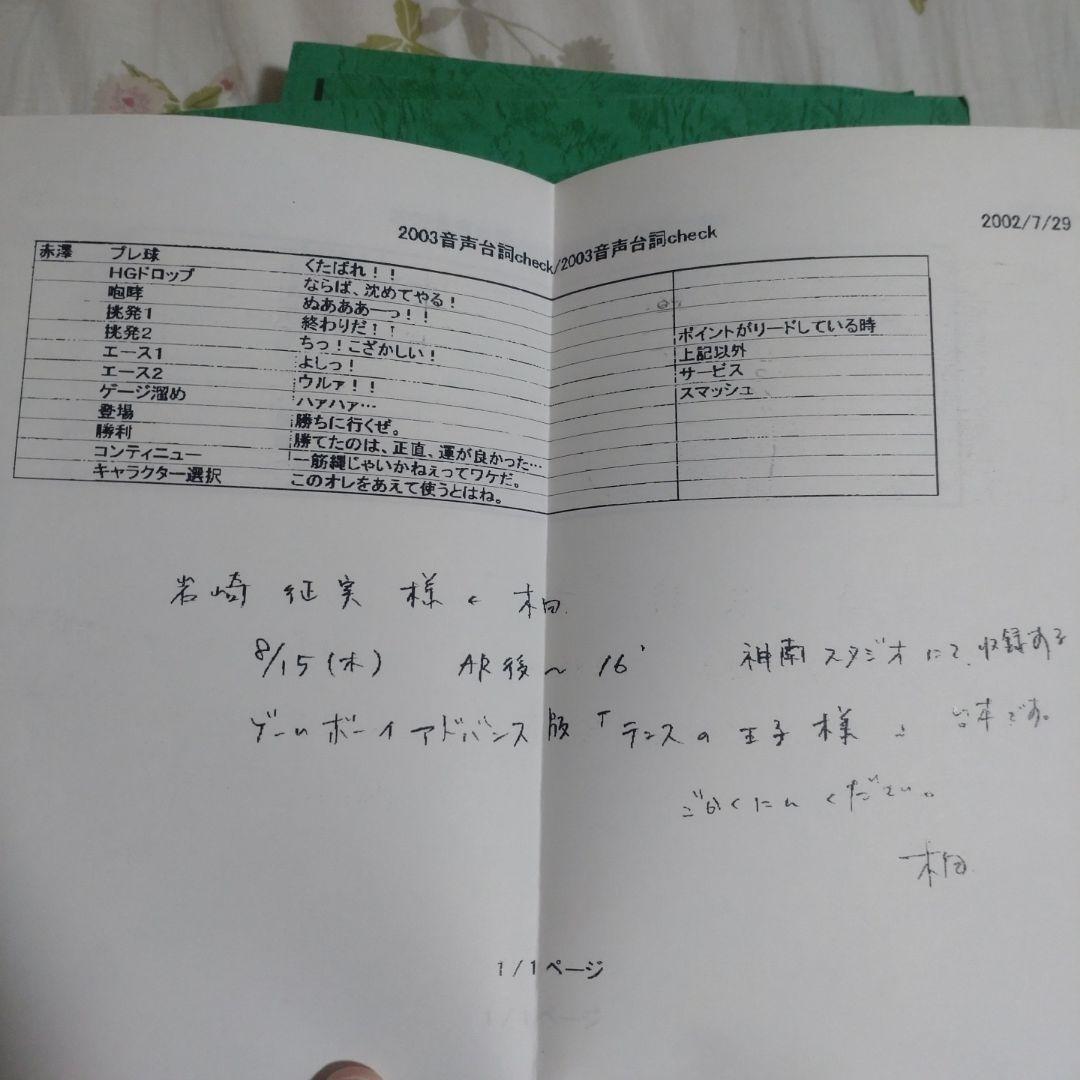 2002/7/29
2003音声台詞check/2003音声台詞check
赤澤 ブレ球 くたばれ！！
HGドロップ ならば、沈めてやる！
咆哮 ぬあああーっ！！
挑発1 終わりだ！！ ポイントがリードしている時
挑発2 ちっ！こざかしい！ 上記以外
エース1 よしっ！ サービス
エース2 ウルァ！！ スマッシュ
ゲージ溜め ハァハァ…
登場 勝ちに行くぜ。
勝利 勝てたのは、正直、運が良かった…
コンティニュー 一筋縄じゃいかねぇってワケだ。
キャラクター選択 このオレをあえて使うとはね。
岩崎 征実 様
8/15(木) AR後〜16' 神南スタジオにて、収録する
ゲームボーイアドバンス版「テニスの王子様 台本です。
ごかくにん ください。
1/1ページ